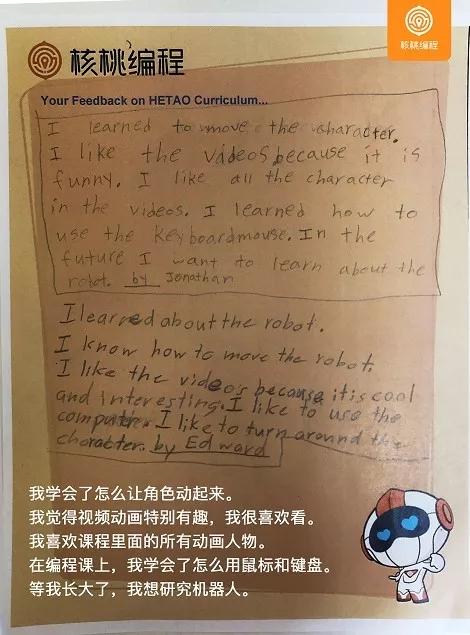 核桃编程
核桃编程
Your Feedback on HETAO Curriculum...
I learned to move the character.
I like the videos because it is
funny. I like all the character
in the videos. I learned how to
use the keyboardmouse. In the
future I want to learn about the
robot. by Jonathan
I learned about the robot.
I know how to move the robot.
I like the videos because it is cool
and interesting. I like to use the
computer. I like to turn around the
character. by Edward
我学会了怎么让角色动起来。
我觉得视频动画特别有趣,我很喜欢看。
我喜欢课程里面的所有动画人物。
在编程课上,我学会了怎么用鼠标和键盘。
等我长大了,我想研究机器人。